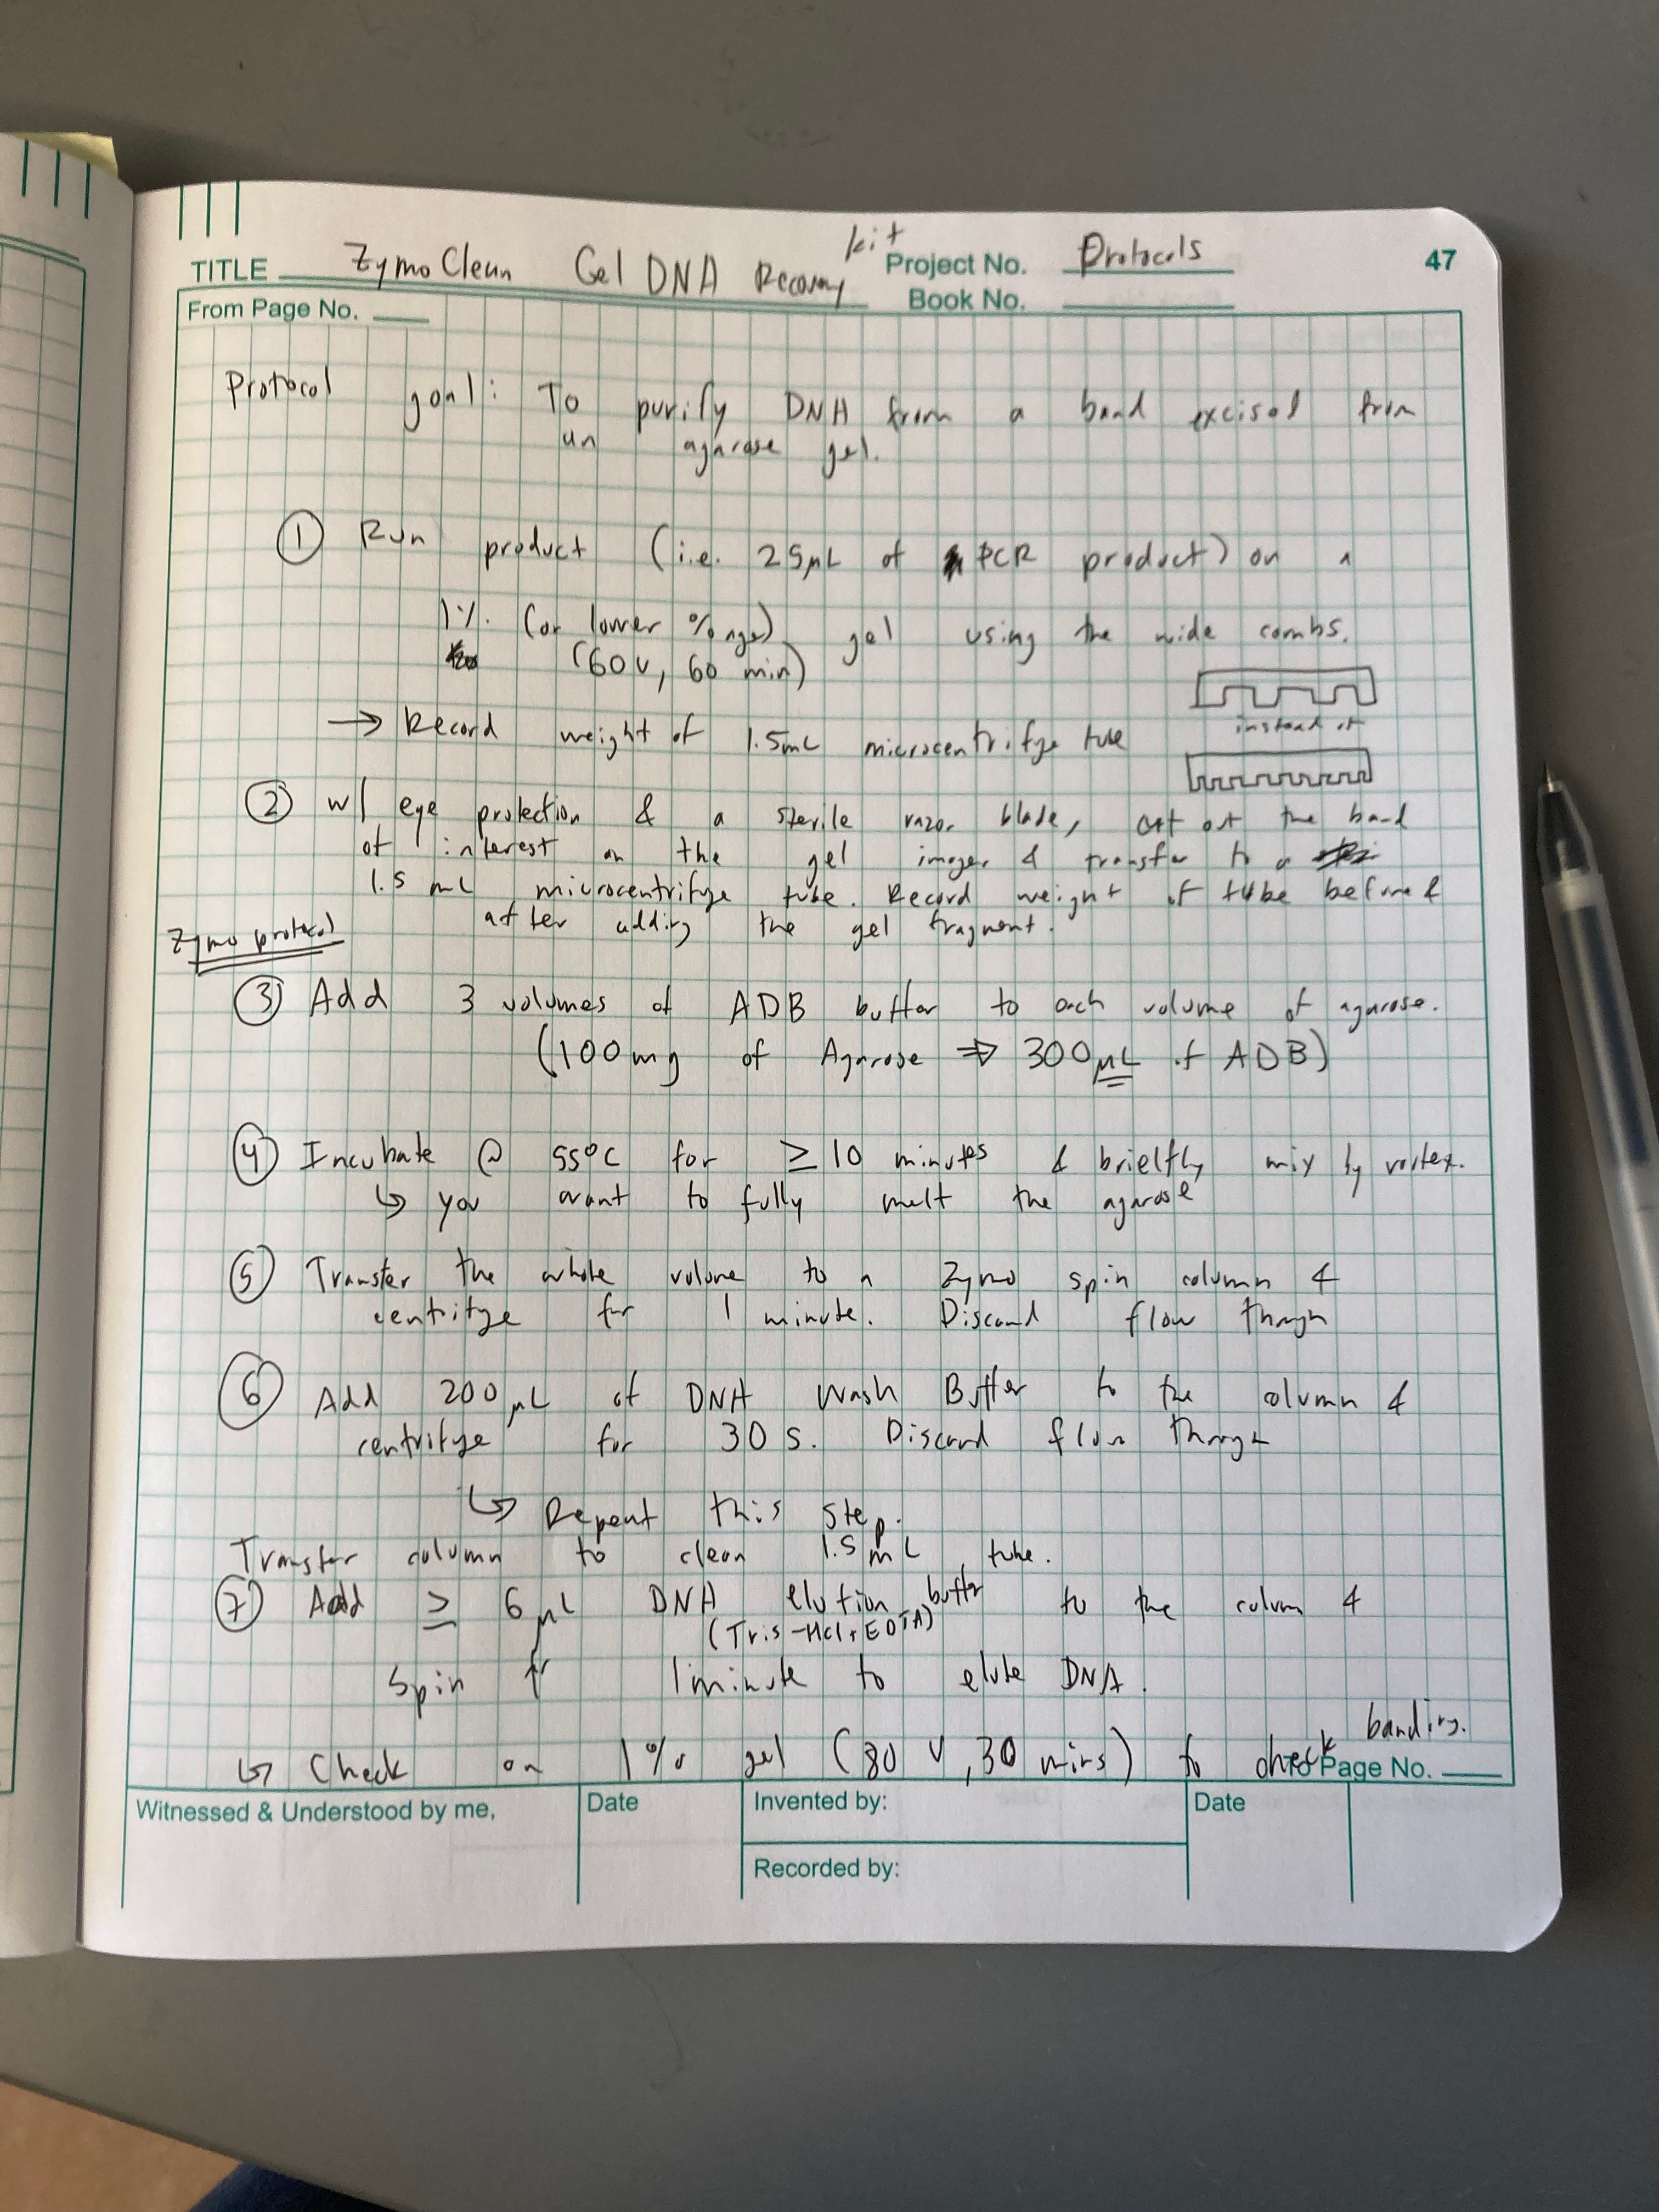 TITLE ZymoClean Gel DNA Recovery kit Project No. Protocols 47
Book No.
From Page No.
Protocol goal: To purify DNA from a band excised from
an agarose gel.
① Run product (i.e. 25μL of PCR product) on a
1% (or lower %age) gel using the wide combs.
(60V, 60 min)
→ Record weight of 1.5mL microcentrifge tube
instead of
② w/ eye protection & a sterile razor blade, cut out the band
of interest on the gel imager & transfer to a
1.5 mL microcentrifge tube. Record weight of tube before &
after adding the gel fragment.
Zymo protocol
③ Add 3 volumes of ADB buffer to each volume of agarose.
(100mg of Agarose ⇒ 300μL of ADB)
④ Incubate @ 55°C for ≥10 minutes & brielfly mix by vortex.
↳ you want to fully melt the agarose
⑤ Transfer the whole volume to a Zymo spin column &
centrifge for 1 minute. Discard flow through
⑥ Add 200μL of DNA Wash Buffer to the column &
centrifge for 30 s. Discard flow through
↳ Repeat this step.
Transfer column to clean 1.5 mL tube.
⑦ Add ≥ 6μL DNA elution buffer to the column &
(Tris-HCl + EDTA)
Spin for 1 minute to elute DNA.
↳ Check on 1% gel (80 V, 30 mins) to check banding.
To Page No.
Witnessed & Understood by me, Date Invented by: Date
Recorded by: